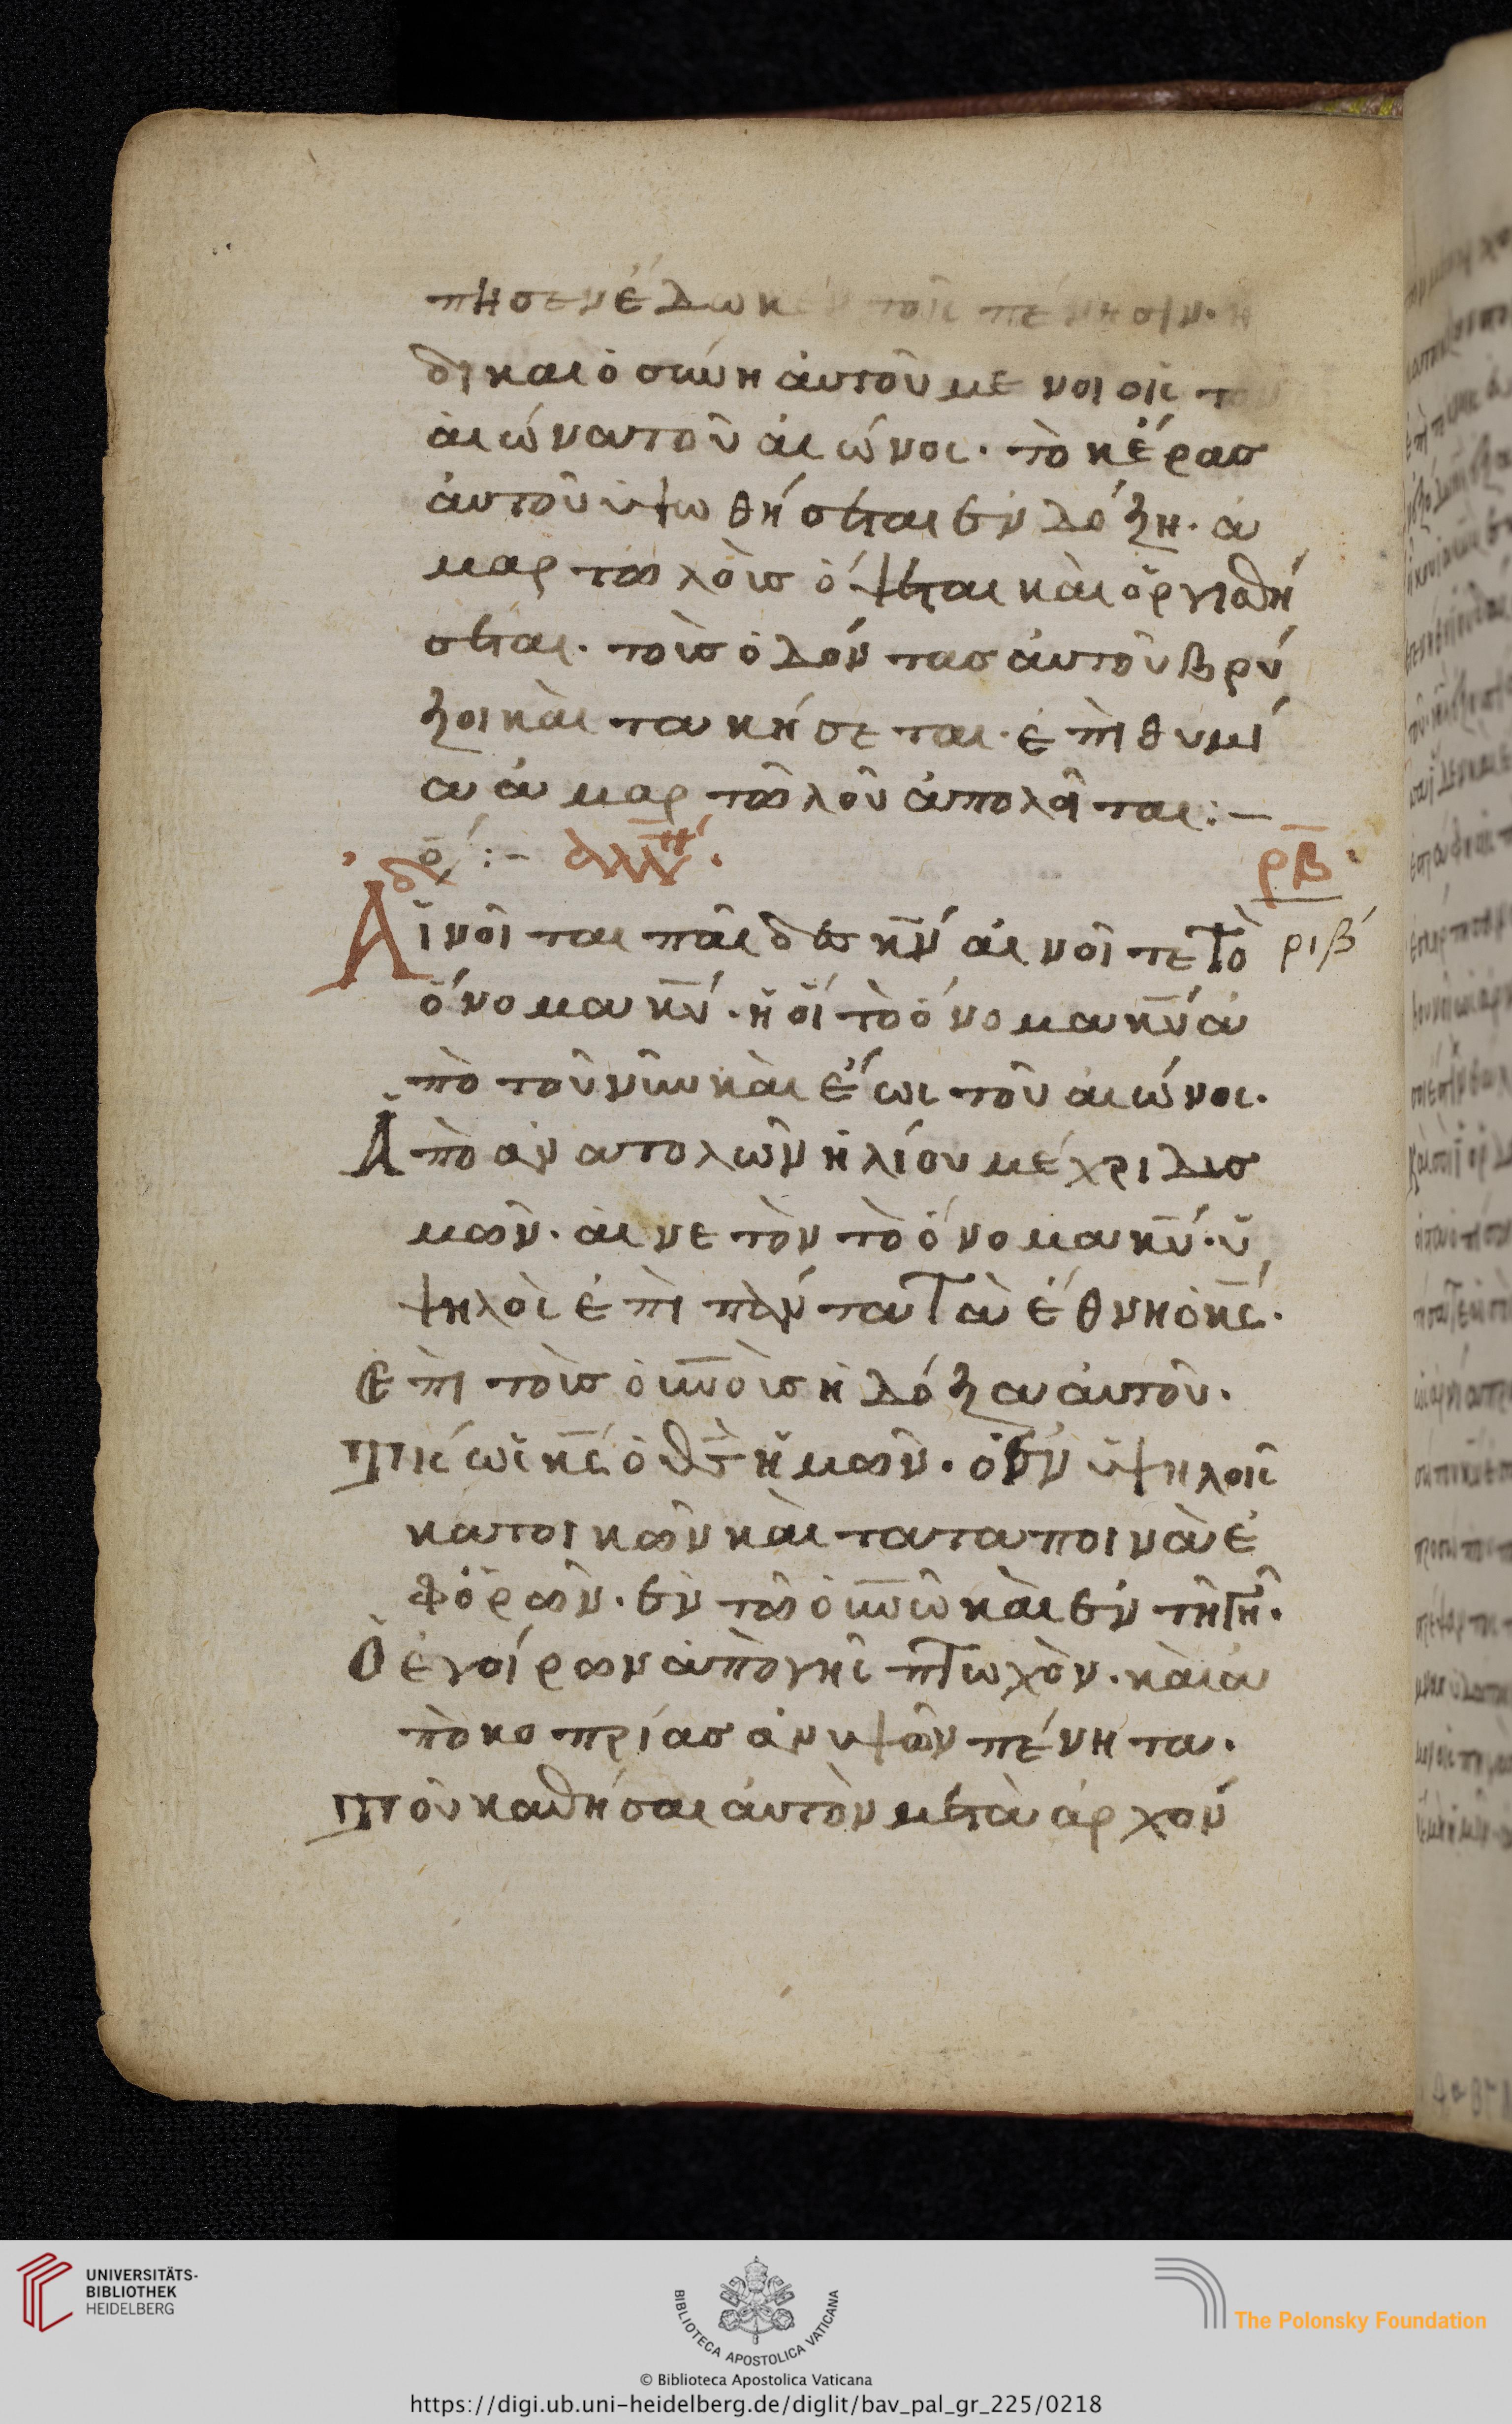 πησεν έδωκεν τοῖς πένησιν· η
δικαιὀσύνη ἀυτοῦ μενοι οἰς τον
ἀιώνα τοῦ ἀιώνος· τὸ κέρας
ἀυτοῦ ὑψωθήσεται ἐν λόξη· ἁ
μαρτωλὸις ὄψεται κὰι ὀργισθή
σεται· τοὶς ὀλόντας ἀυτοῦ βρύ
ξοι κὰι τακήσεται· ἐπιθυμί
α ἁμαρτωλοῦ ἀπολοῖται:—
ο:—
δ
ἀλλη.
ρβ
Ἀϊνοῖται παῖδες κν̄ ἀινοῖτε τὸ
ριβ
ὄνομα κν̄· ἤ οἴ τὸ ὄνομα κν̄ ἀ
πὸ τοῦ νῦν κὰι ἕως τοῦ ἀιώνος·
Ἀπὸ ἀνατολῶν ἡλίου μέχρι λισ
μῶν· ἀινετὸν τὸ ὄνομα κν̄· ὑ
ψηλὸς ἐπὶ πάντα τὰ ἔθνη ὁ κς̄·
ἐπὶ τοὶς ὀυν̄οὶς ἡ λόξα ἀυτοῦ·
Τις ὡς κς̄ ὁ θς̄ ἡμῶν· ὁ ἐν ὑψηλοῖς
κατοικῶν κὰι τα ταποινὰ ἐ
φὀρῶν· ἐν τῶ ὀυν̄ῶ κὰι ἐν τῆ γῆ·
Ὁ ἐγοίρων ἀπὸ γῆς πτωχὸν· κὰι ἀ
πὸ κοπρίας ἀνυψῶν πένητα·
Τοῦ καθήσαι ἀυτὸν μετὰ ἀρχόν
UNIVERSITÄTS-
BIBLIOTHEK
HEIDELBERG
BIBLIOTECA APOSTOLICA VATICANA
The Polonsky Foundation
© Biblioteca Apostolica Vaticana
https://digi.ub.uni-heidelberg.de/diglit/bav_pal_gr_225/0218